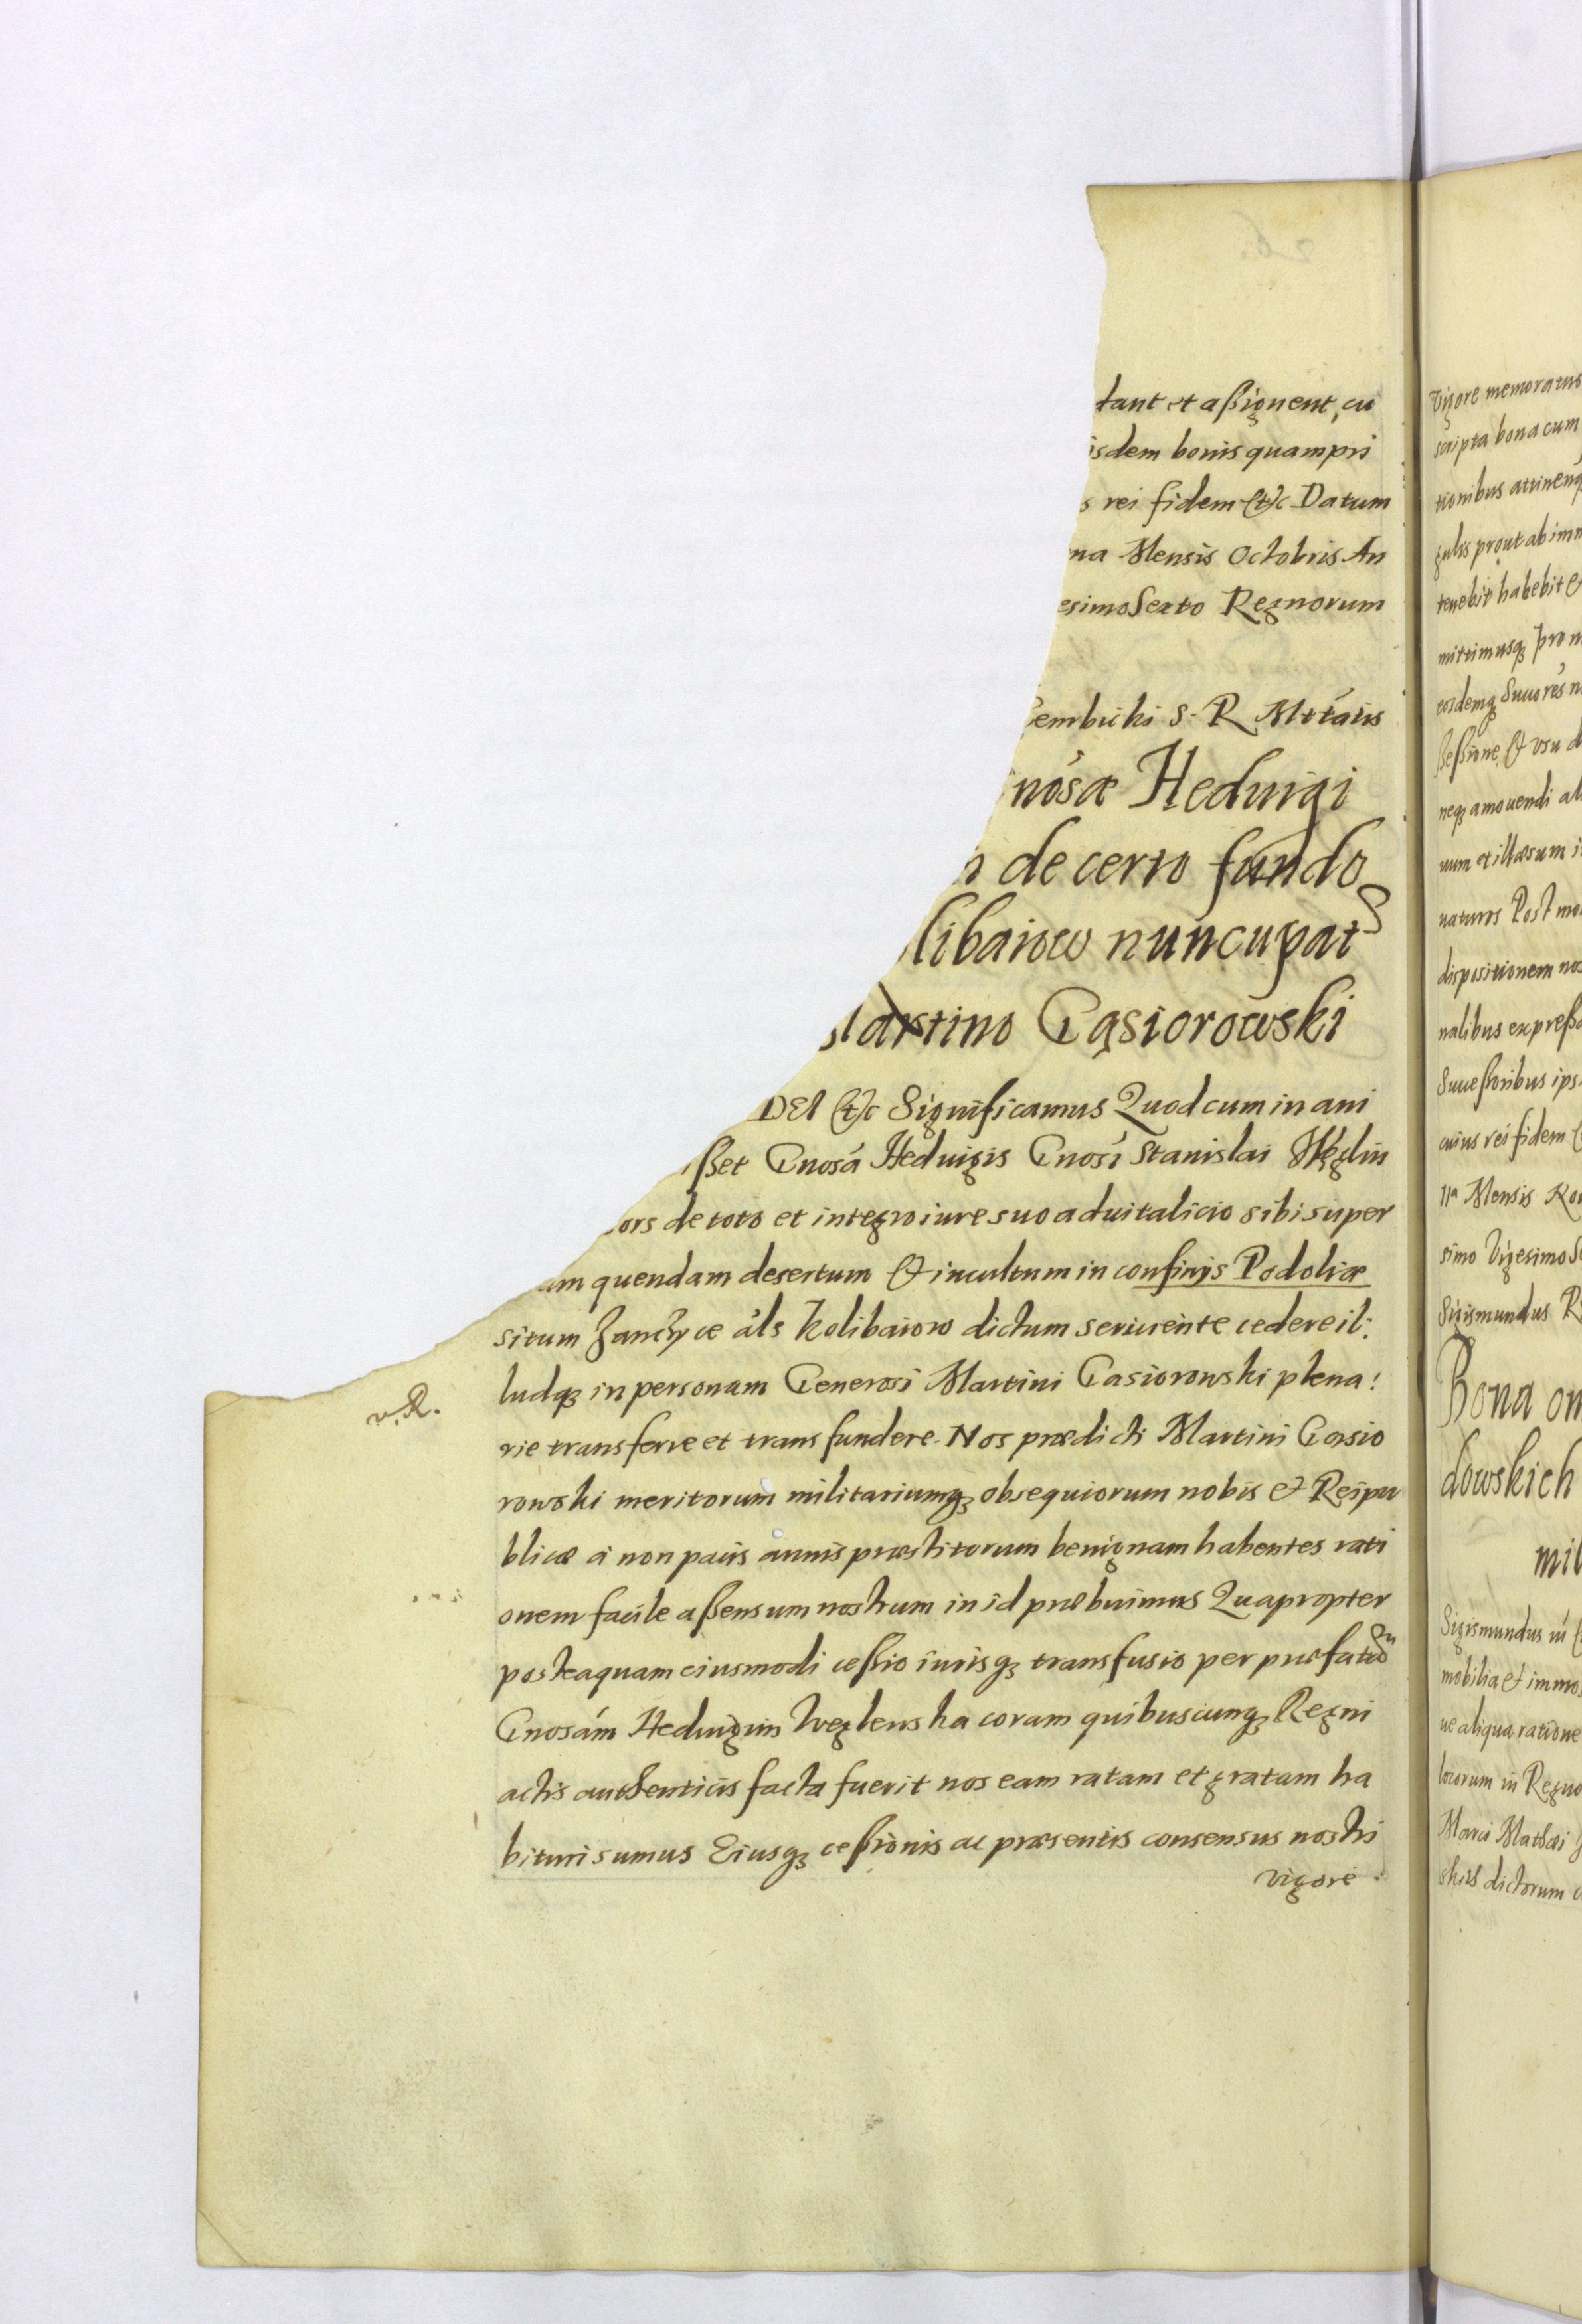 26.
tant et aßignent, cu
isdem bonis quampri
s rei fidem etc Datum
na Mensis Octobris An
esimo Sexto Regnorum
Gembicki S. R. Mttatis
nosæ Heduigi
de certo fundo
libaiow nuncupat
Martino Gąsiorowski
DEI etc Significamus Quod cum in ani
ßet Gnosa Heduigis Gnosi Stanislai Węglin
ors de toto et integro iure suo aduitalicio sibi super
am quendam desertum et incultum in confinijs Podoliæ
situm Janczyce als Kolibaiow dictum seruiente cedere il:
ludq3 in personam Generosi Martini Gasiorowski plena:
rie transferre et transfundere. Nos prædicti Martini Gąsio
v. R.
rowski meritorum militariumq3 obsequiorum nobis et Reipu
blicæ a non pacis annis præstitorum benignam habentes rati
onem facile aßensum nostrum in id præbuimus Quapropter
posteaquam eiusmodi ceßio iurisq3 transfusio per præfatam
Gnosam Heduigim Węglenska coram quibuscunq3 Regni
actis authenticis facta fuerit nos eam ratam et gratam ha
bituri sumus Eiusq3 ceßionis ac præsentis consensus nostri
vigore
Vigore memoratus
scripta bona cum
tionibus attinen
gulis prout ab im
tenebit habebit et
mittimusq3 pro n
eosdemq3 Succores n
ßeßione et vsu
neq3 amouendi al
uum et illæsum i
naturos Post mo
dispositionem nos
nalibus expreß
Succeßoribus ips
cuius rei fidem
11a Mensis No
simo Vigesimo S
Sigismundus R
Bona om
dowskich
mil
Sigismundus
mobilia et immo
ue aliqua ratione
locorum in Regno
Marci Mathæi
skich dictorum